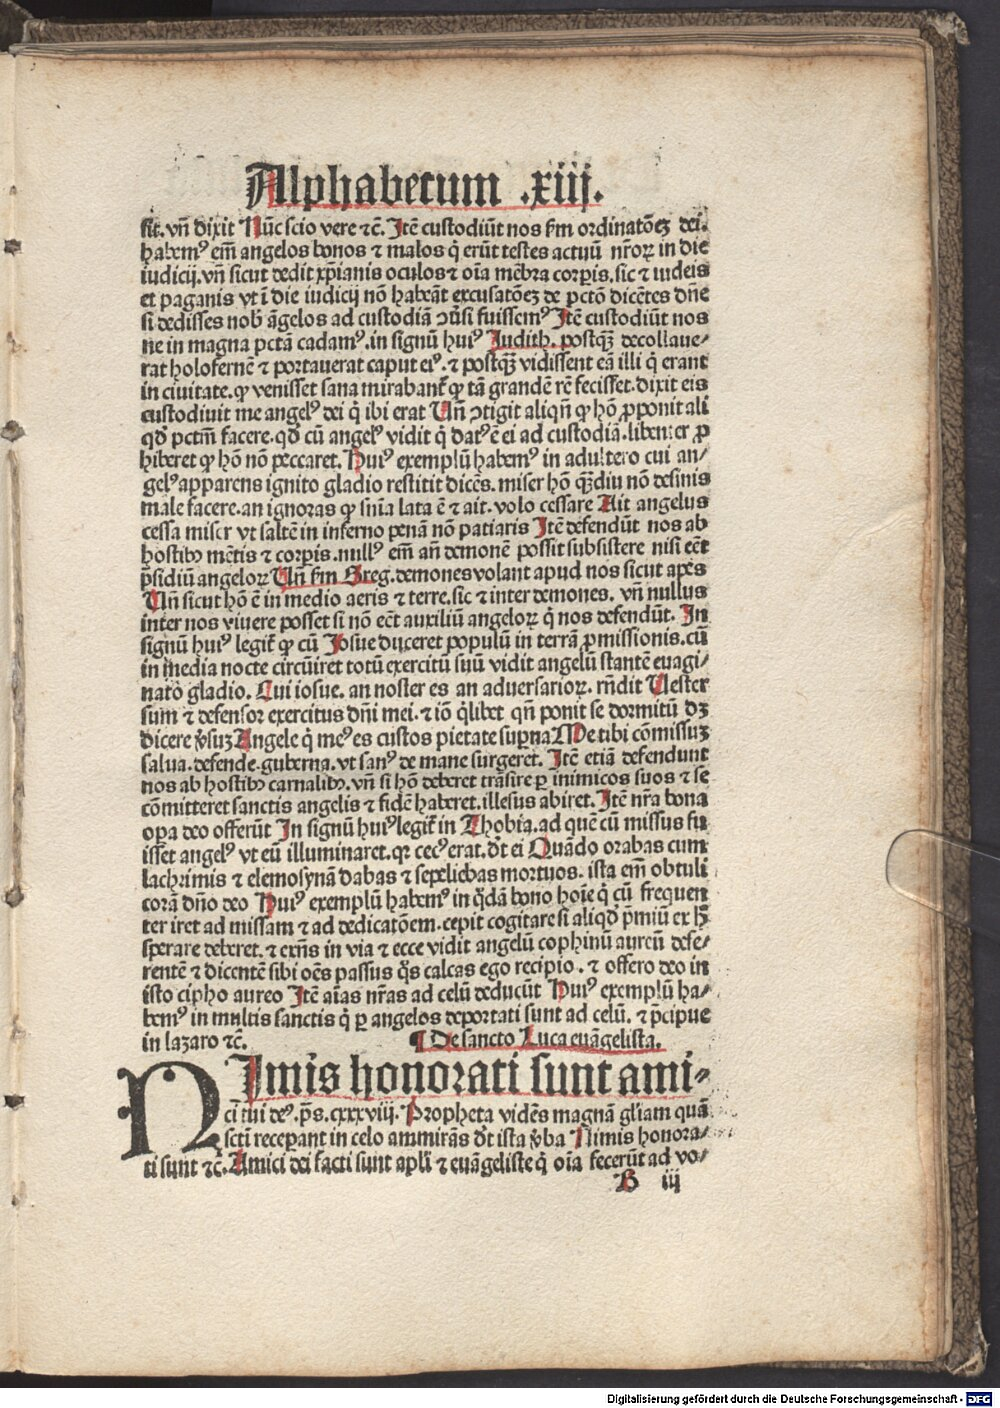 Alphabetum .xiii.
sit. vñ dixit Nũc scio vere ⁊c̃. Itẽ custodiũt nos ẜm ordinatõeꝫ dei.
habemꝰ em̃ angelos bonos ⁊ malos q̇ erũt testes actuũ nr̃oꝝ in die
iudicij. vñ sicut dedit xp̃ianis oculos ⁊ oĩa mẽbra corpis. sic ⁊ iudeis
et paganis vt ĩ die iudicij nõ habeãt excusatõeꝫ de pctõ dicẽtes dñe
si dedisses nob̃ ãgelos ad custodiã ↄ̃usi fuissemꝰ Itẽ custodiũt nos
ne in magna pctã cadamꝰ. in signũ huiꝰ Iudith. postq̃ꝫ decollaue⸗
rat holofernẽ ⁊ portauerat caput eiꝰ. ⁊ postq̃ꝫ vidissent eã illi q̇ erant
in ciuitate. ꝙ venisset sana mirabant᷑ ꝙ tã grandẽ rẽ fecisset. dixit eis
custodiuit me angelꝰ dei q̇ ibi erat Vñ ↄtigit aliqñ ꝙ hõ ꝓponit ali
qd̃ pctm̃ facere. qd̃ cũ angelꝰ vidit q̇ datꝰ ẽ ei ad custodiã. libenter ꝓ
hiberet ꝙ hõ nõ peccaret. Huiꝰ exemplũ habemꝰ in adultero cui an⸗
gelꝰ apparens ignito gladio restitit dicẽs. miser hõ q̃ꝫdiu nõ desinis
male facere. an ignoras ꝙ sñia lata ẽ ⁊ ait. volo cessare Ait angelus
cessa miser vt saltẽ in inferno penã nõ patiaris Itẽ defendũt nos ab
hostibꝰ mẽtis ⁊ corpis. nullꝰ em̃ añ demonẽ possit subsistere nisi eẽt
p̃sidiũ angeloꝝ Vñ ẜm Greg. demones volant apud nos sicut apes
Vñ sicut hõ ẽ in medio aeris ⁊ terre. sic ⁊ inter demones. vñ nullus
inter nos viuere posset si nõ eẽt auxiliũ angeloꝝ q̇ nos defendũt. In
signũ huiꝰ legit᷑ ꝙ cũ Iosue duceret populũ in terrã ꝓmissionis. cũ
in media nocte circũiret totũ exercitũ suũ vidit angelũ stantẽ euagi⸗
nato gladio. Cui iosue. an noster es an aduersarioꝝ. rñdit Uester
sum ⁊ defensor exercitus dñi mei. ⁊ iõ q̇libet qñ ponit se dormitũ dꝫ
dicere ṽsuꝫ Angele q̇ meꝰ es custos pietate supna Me tibi cõmissuꝫ
salua. defende. guberna. vt sanꝰ de mane surgeret. Itẽ etiã defendunt
nos ab hostibꝰ carnalibꝰ. vñ si hõ deberet trãsire ꝑ inimicos suos ⁊ se
cõmitteret sanctis angelis ⁊ fidẽ haberet. illesus abiret. Itẽ nr̃a bona
opa deo offerũt In signũ huiꝰ legit᷑ in Thobia. ad quẽ cũ missus fu
isset angelꝰ vt eũ illuminaret. qꝛ cecꝰ erat. dr̃t ei Quãdo orabas cum
lachrimis ⁊ elemosynã dabas ⁊ sepeliebas mortuos. ista em̃ obtuli
corã dño deo Huiꝰ exemplũ habemꝰ in q̇dã bono hoĩe q̇ cũ frequen
ter iret ad missam ⁊ ad dedicatõem. cepit cogitare si aliqd̃ p̃miũ ex h̃
sperare deberet. ⁊ exñs in via ⁊ ecce vidit angelũ cophinũ aureũ defe⸗
rentẽ ⁊ dicentẽ sibi oẽs passus q̇s calcas ego recipio. ⁊ offero deo in
isto cipho aureo Itẽ aĩas nr̃as ad celũ deducũt Huiꝰ exemplũ ha⸗
bemꝰ in multis sanctis q̇ ꝑ angelos deportati sunt ad celũ. ⁊ p̃cipue
in lazaro ⁊c̃.
¶ De sancto Luca euãgelista.
NImis honorati sunt ami⸗
ci tui deꝰ. p̃s. cxxxviij. Propheta vidẽs magnã gl̃iam quã
sctĩ receperant in celo ammirãs dr̃t ista ṽba Nimis honora⸗
ti sunt ⁊c̃. Amici dei facti sunt apl̃i ⁊ euãgeliste q̇ oĩa fecerũt ad vo⸗
B iij
Digitalisierung gefördert durch die Deutsche Forschungsgemeinschaft - DFG